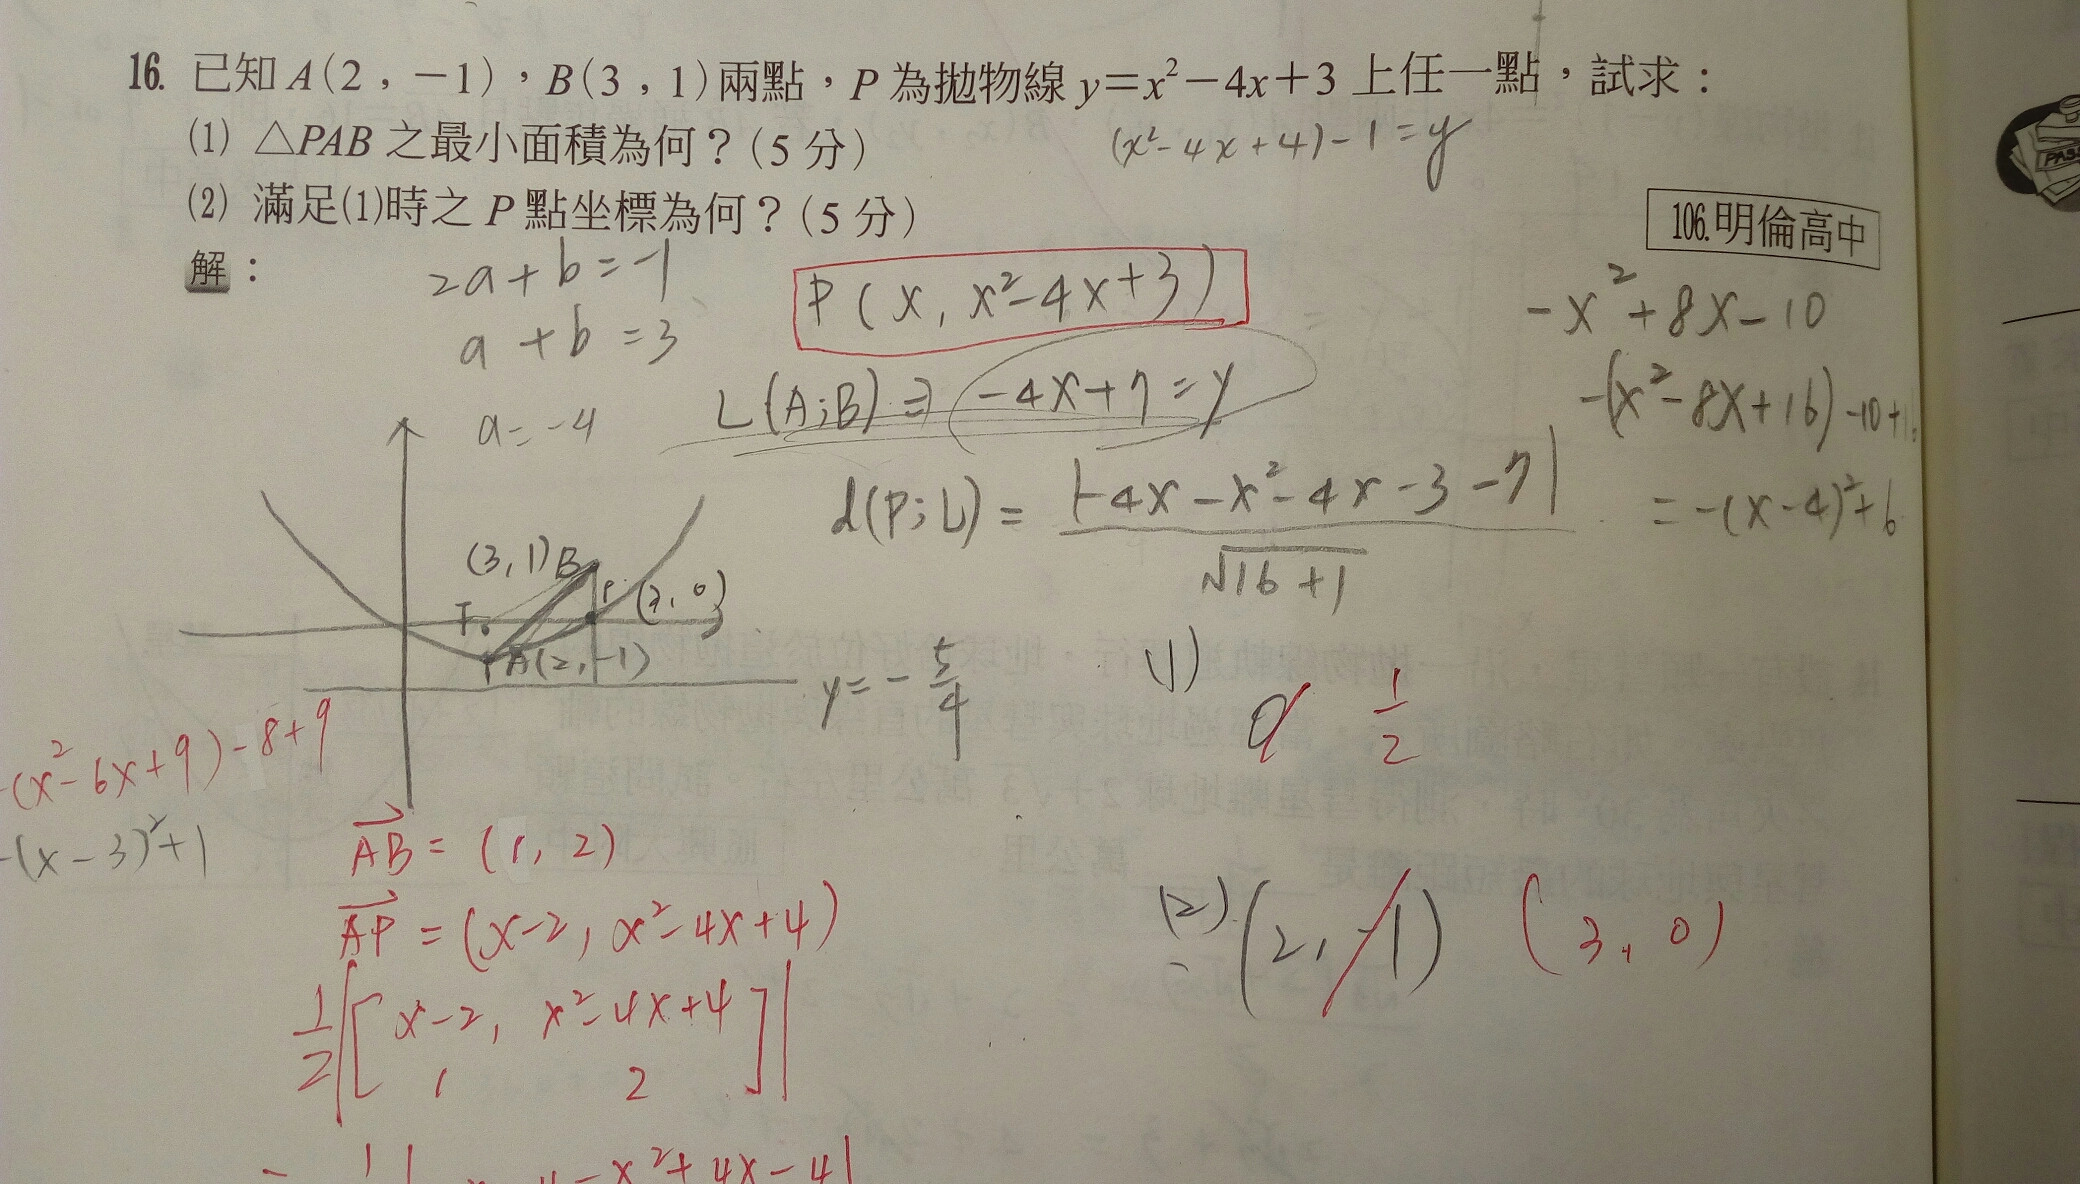 16. 已知 A(2,-1),B(3,1)兩點,P 為拋物線 y=x²-4x+3 上任一點,試求:
(1) △PAB 之最小面積為何?(5 分)
(x²-4x+4)-1=y
(2) 滿足(1)時之 P 點坐標為何?(5 分)
106.明倫高中
解:
2a+b=-1
a+b=3
a=-4
P(x, x²-4x+3)
L(A;B)⇒ -4x+7=y
d(P;L)= |-4x-x²-4x-3-7| / √16+1
-x²+8x-10
-(x²-8x+16)-10+16
=-(x-4)²+6
(3,1)B
(3,0)
A(2,-1)
y=-5/4
(1) 0 1/2
-(x²-6x+9)-8+9
-(x-3)²+1
AB=(1,2)
AP=(x-2, x²-4x+4)
(2). (2,-1) (3,0)
1/2 |[x-2, x²-4x+4
1 2]|
PASS